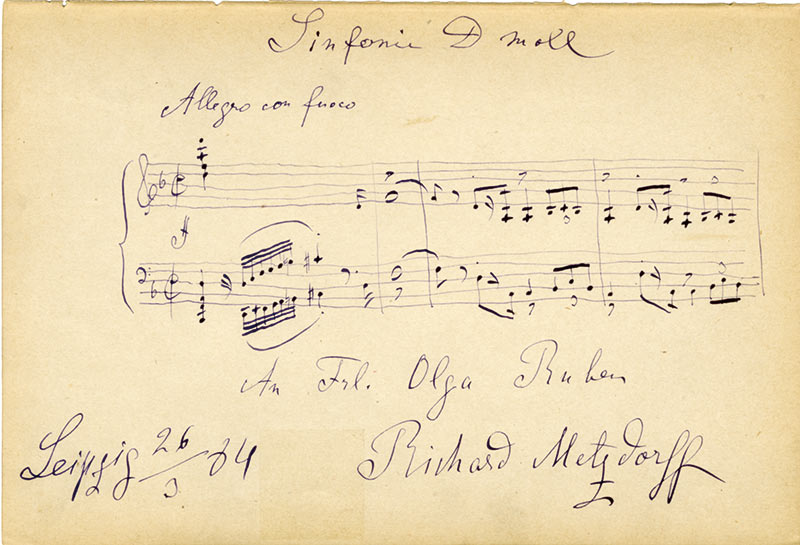 Sinfonie D moll
Allegro con fuoco
An Frl. Olga Ruben
Leipzig 26/3 84
Richard Metzdorff